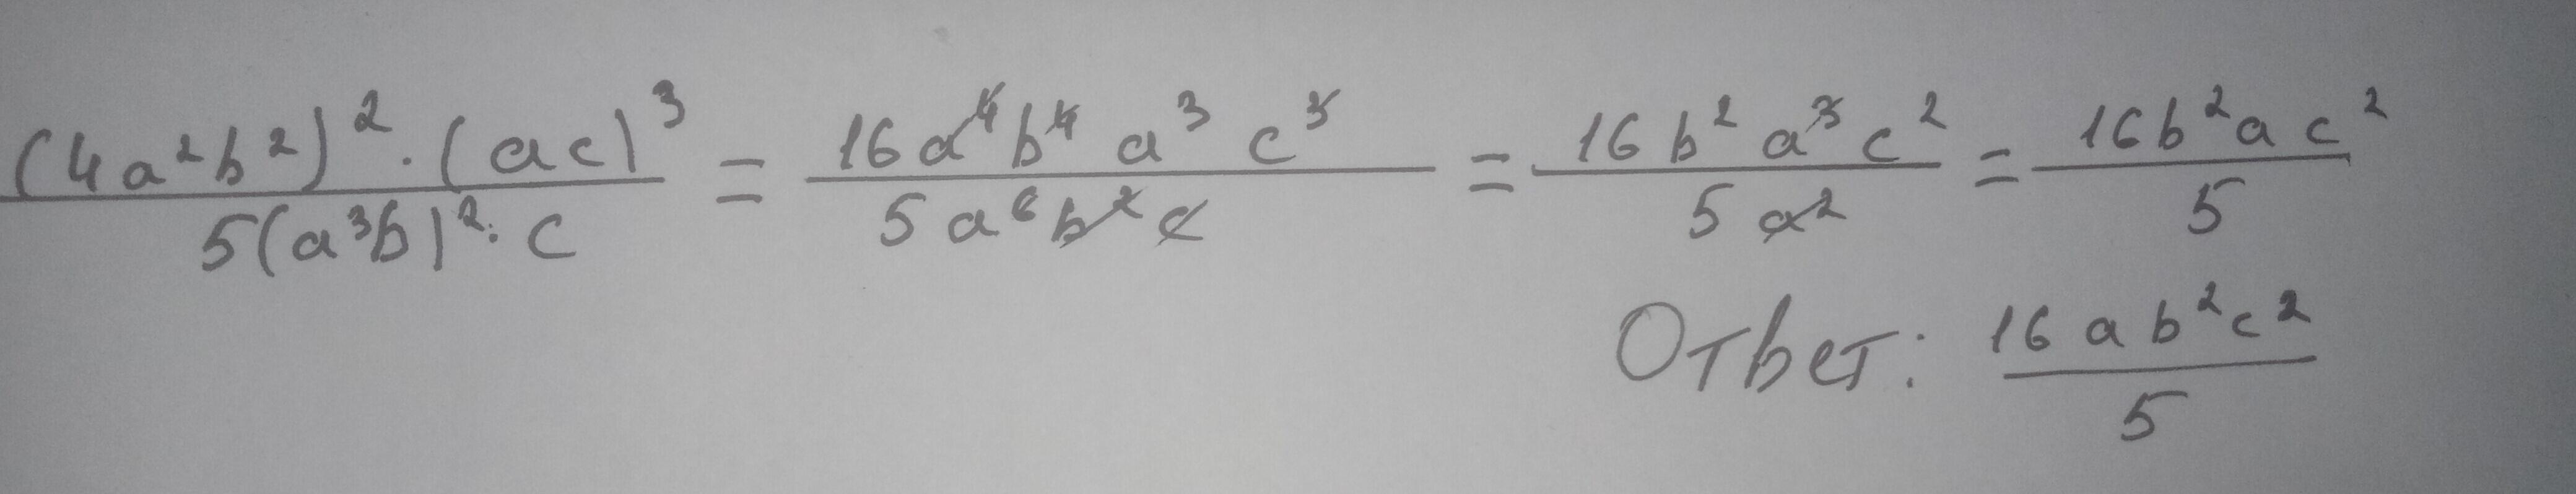 (4a²b²)²·(ac)³ / 5(a³b)²·c = 16a⁴b⁴a³c³ / 5a⁶b²c = 16b²a³c² / 5a² = 16b²ac² / 5
Ответ: 16ab²c² / 5